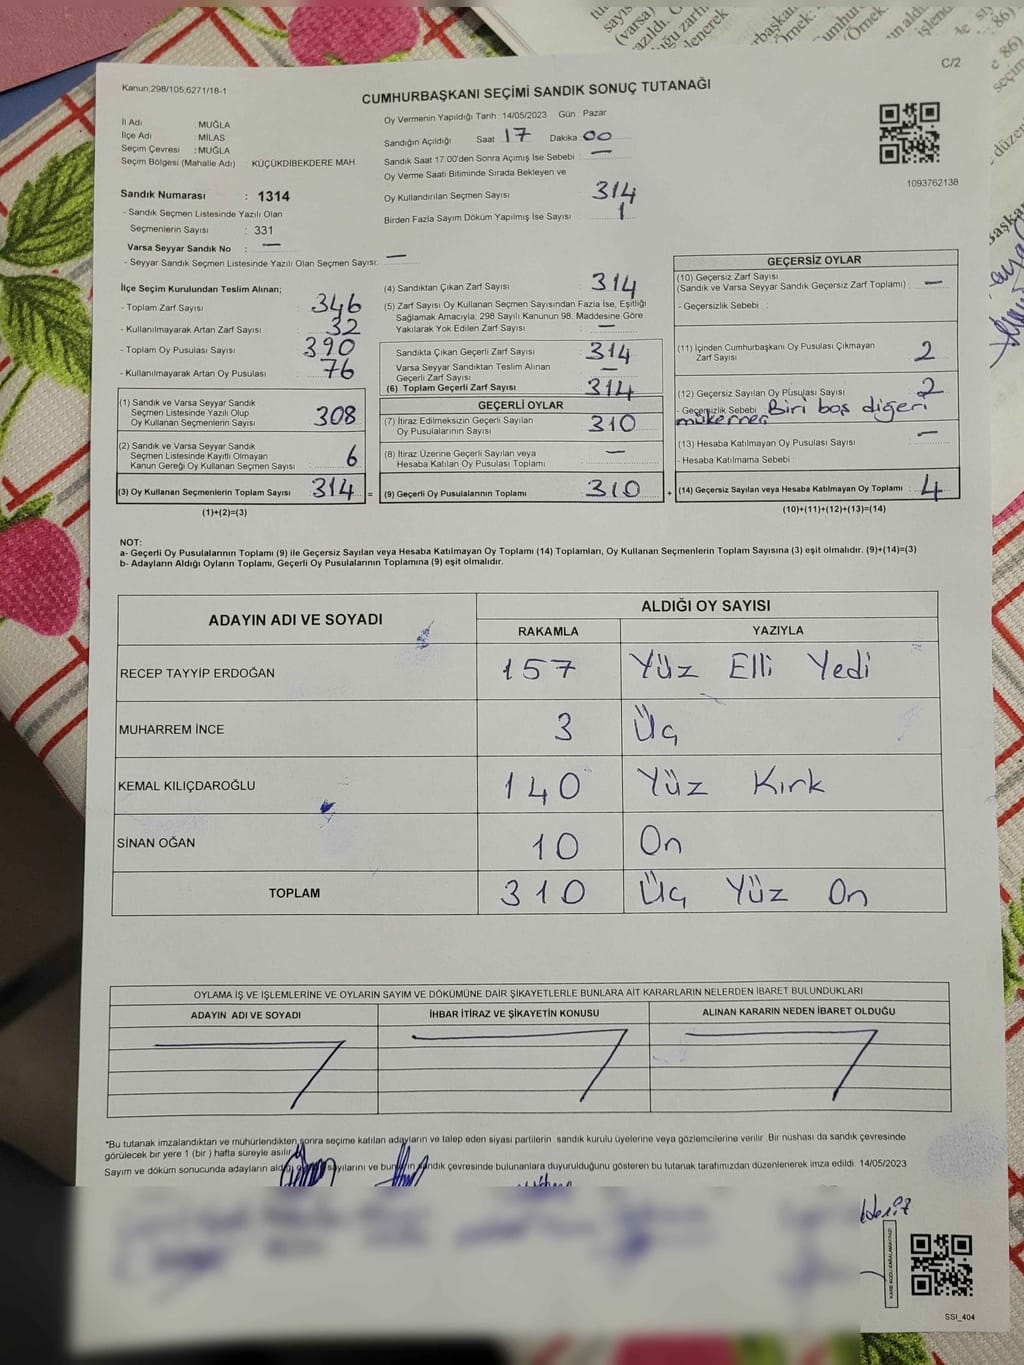 C/2
Kanun;298/105;6271/18-1
CUMHURBAŞKANI SEÇİMİ SANDIK SONUÇ TUTANAĞI
İl Adı : MUĞLA
İlçe Adı : MİLAS
Seçim Çevresi : MUĞLA
Seçim Bölgesi (Mahalle Adı) : KÜÇÜKDİBEKDERE MAH.
Sandık Numarası : 1314
- Sandık Seçmen Listesinde Yazılı Olan
Seçmenlerin Sayısı : 331
Varsa Seyyar Sandık No : —
- Seyyar Sandık Seçmen Listesinde Yazılı Olan Seçmen Sayısı: —
Oy Vermenin Yapıldığı Tarih : 14/05/2023 Gün : Pazar
Sandığın Açıldığı Saat 17 Dakika 00
Sandık Saat 17.00'den Sonra Açımış İse Sebebi : —
Oy Verme Saati Bitiminde Sırada Bekleyen ve
Oy Kullandırılan Seçmen Sayısı 314
Birden Fazla Sayım Döküm Yapılmış İse Sayısı 1
1093762138
İlçe Seçim Kurulundan Teslim Alınan;
- Toplam Zarf Sayısı : 346
- Kullanılmayarak Artan Zarf Sayısı : 32
- Toplam Oy Pusulası Sayısı : 390
- Kullanılmayarak Artan Oy Pusulası : 76
(1) Sandık ve Varsa Seyyar Sandık
Seçmen Listesinde Yazılı Olup
Oy Kullanan Seçmenlerin Sayısı 308
(2) Sandık ve Varsa Seyyar Sandık
Seçmen Listesinde Kayıtlı Olmayan
Kanun Gereği Oy Kullanan Seçmen Sayısı 6
(3) Oy Kullanan Seçmenlerin Toplam Sayısı 314 =
(1)+(2)=(3)
(4) Sandıktan Çıkan Zarf Sayısı : 314
(5) Zarf Sayısı Oy Kullanan Seçmen Sayısından Fazla İse, Eşitliği
Sağlamak Amacıyla; 298 Sayılı Kanunun 98. Maddesine Göre
Yakılarak Yok Edilen Zarf Sayısı : —
Sandıkta Çıkan Geçerli Zarf Sayısı : 314
Varsa Seyyar Sandıktan Teslim Alınan
Geçerli Zarf Sayısı : —
(6) Toplam Geçerli Zarf Sayısı : 314
GEÇERLİ OYLAR
(7) İtiraz Edilmeksizin Geçerli Sayılan
Oy Pusulalarının Sayısı : 310
(8) İtiraz Üzerine Geçerli Sayılan veya
Hesaba Katılan Oy Pusulası Toplamı : —
(9) Geçerli Oy Pusulalarının Toplamı : 310 +
GEÇERSİZ OYLAR
(10) Geçersiz Zarf Sayısı
(Sandık ve Varsa Seyyar Sandık Geçersiz Zarf Toplamı) : —
- Geçersizlik Sebebi :
(11) İçinden Cumhurbaşkanı Oy Pusulası Çıkmayan
Zarf Sayısı : 2
(12) Geçersiz Sayılan Oy Pusulası Sayısı : 2
- Geçersizlik Sebebi : Biri boş diğeri
mükerrer
(13) Hesaba Katılmayan Oy Pusulası Sayısı : —
- Hesaba Katılmama Sebebi :
(14) Geçersiz Sayılan veya Hesaba Katılmayan Oy Toplamı : 4
(10)+(11)+(12)+(13)=(14)
NOT:
a- Geçerli Oy Pusulalarının Toplamı (9) ile Geçersiz Sayılan veya Hesaba Katılmayan Oy Toplamı (14) Toplamları, Oy Kullanan Seçmenlerin Toplam Sayısına (3) eşit olmalıdır. (9)+(14)=(3)
b- Adayların Aldığı Oyların Toplamı, Geçerli Oy Pusulalarının Toplamına (9) eşit olmalıdır.
ADAYIN ADI VE SOYADI ALDIĞI OY SAYISI
RAKAMLA YAZIYLA
RECEP TAYYİP ERDOĞAN 157 Yüz Elli Yedi
MUHARREM İNCE 3 Üç
KEMAL KILIÇDAROĞLU 140 Yüz Kırk
SİNAN OĞAN 10 On
TOPLAM 310 Üç Yüz On
OYLAMA İŞ VE İŞLEMLERİNE VE OYLARIN SAYIM VE DÖKÜMÜNE DAİR ŞİKAYETLERLE BUNLARA AİT KARARLARIN NELERDEN İBARET BULUNDUKLARI
ADAYIN ADI VE SOYADI İHBAR İTİRAZ VE ŞİKAYETİN KONUSU ALINAN KARARIN NEDEN İBARET OLDUĞU
*Bu tutanak imzalandıktan ve mühürlendikten sonra seçime katılan adayların ve talep eden siyasi partilerin sandık kurulu üyelerine veya gözlemcilerine verilir. Bir nüshası da sandık çevresinde
görülecek bir yere 1 (bir ) hafta süreyle asılır.
Sayım ve döküm sonucunda adayların aldığı sayılarını ve bunların sandık çevresinde bulunanlara duyurulduğunu gösteren bu tutanak tarafımızdan düzenlenerek imza edildi. 14/05/2023
KARE KODU KARALAMAYINIZ!
SSI_404